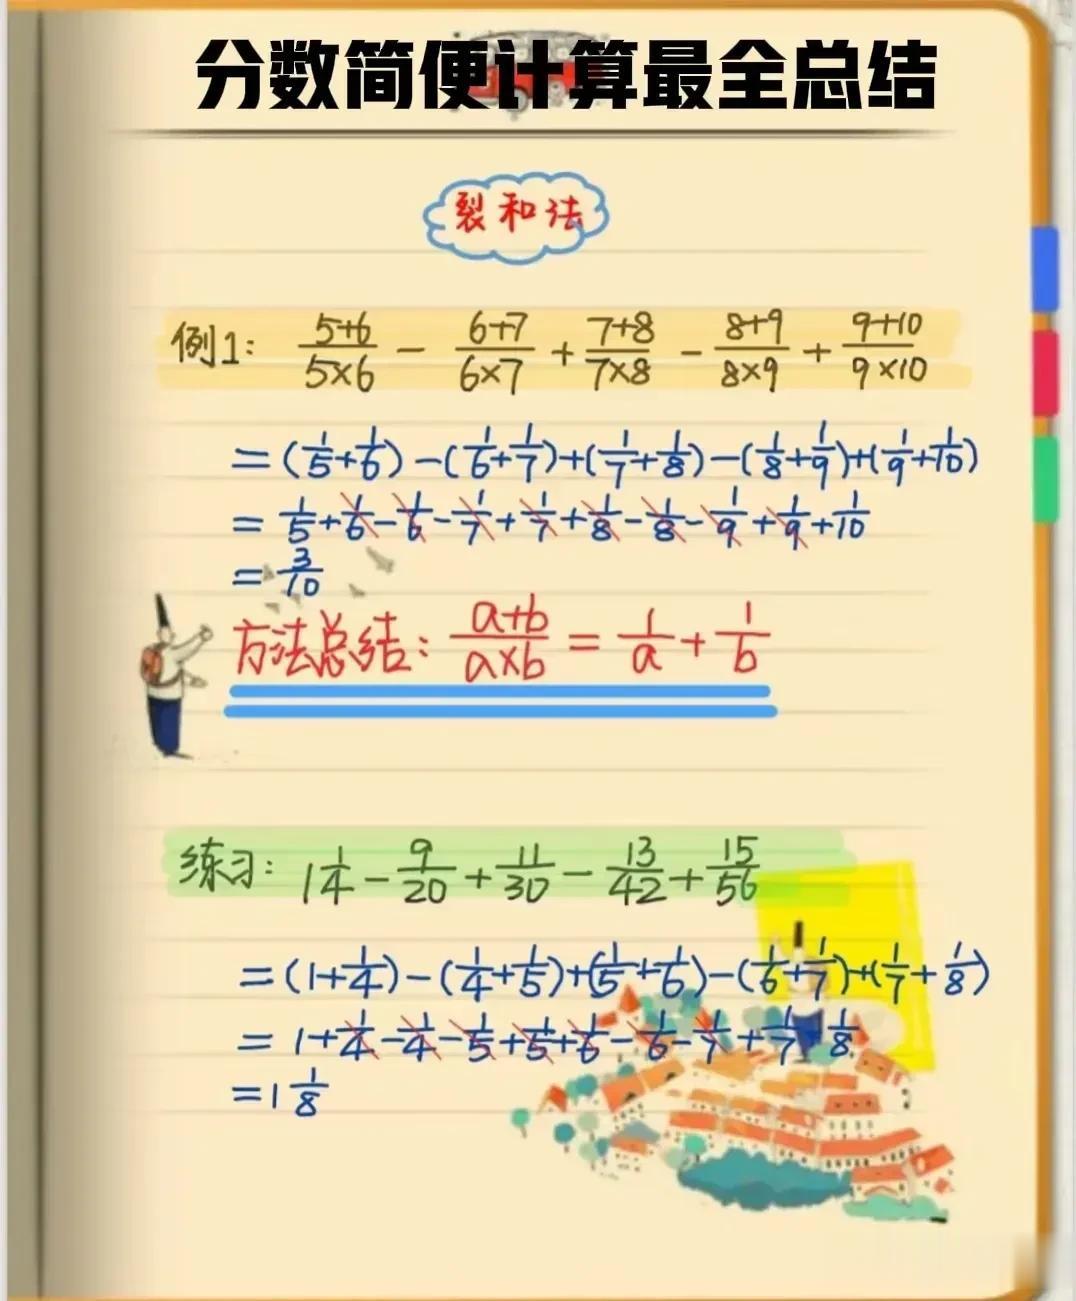 分数简便计算最全总结
裂和法
例1: (5+6)/(5×6) - (6+7)/(6×7) + (7+8)/(7×8) - (8+9)/(8×9) + (9+10)/(9×10)
=(1/5+1/6)-(1/6+1/7)+(1/7+1/8)-(1/8+1/9)+(1/9+1/10)
=1/5+1/6-1/6-1/7+1/7+1/8-1/8-1/9+1/9+1/10
=3/10
方法总结: (a+b)/(a×b) = 1/a + 1/b
练习: 1 1/4 - 9/20 + 11/30 - 13/42 + 15/56
=(1+1/4)-(1/4+1/5)+(1/5+1/6)-(1/6+1/7)+(1/7+1/8)
=1+1/4-1/4-1/5+1/5+1/6-1/6-1/7+1/7+1/8
=1 1/8